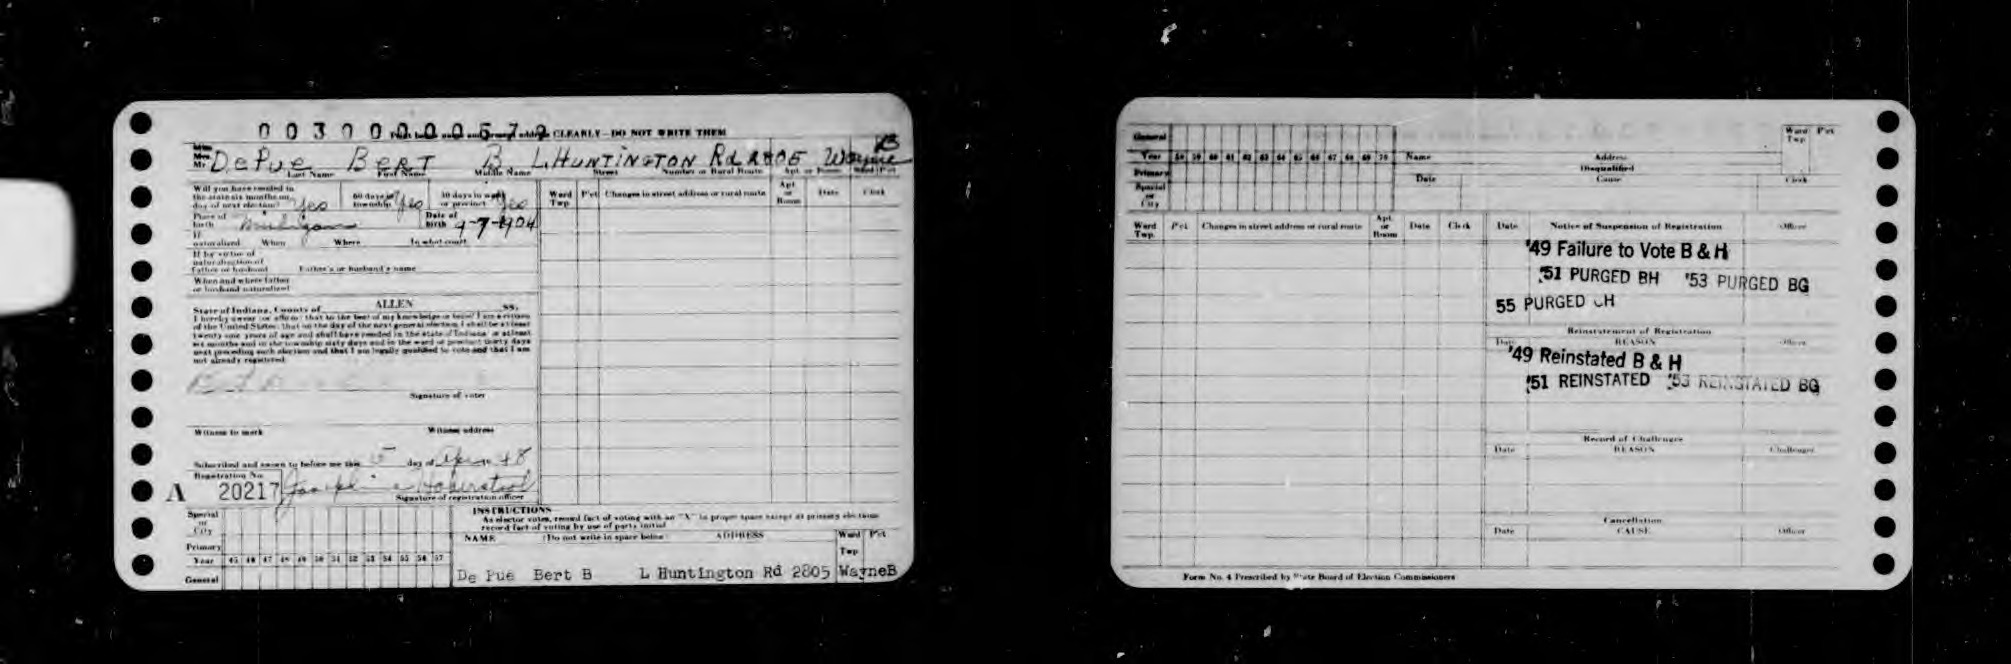 0030000057
Print below name and present address CLEARLY—DO NOT WRITE THEM
B
Miss
Mrs.
Mr. DePue Bert B. L. Huntington Rd 2805 Wayne
Last Name First Name Middle Name Street Number or Rural Route Apt. or Room Ward Pct
Will you have resided in the state six months on day of next election? Yes 60 days in township? Yes 30 days in ward or precinct Yes
Place of birth Michigan Date of birth 9-7-1904
If naturalized When Where In what court
If by virtue of naturalization of Father or husband Father's or husband's name
When and where father or husband naturalized
State of Indiana, County of ALLEN SS.
I hereby swear (or affirm) that to the best of my knowledge or belief I am a citizen
of the United States; that on the day of the next general election I shall be at least
twenty-one years of age and shall have resided in the state of Indiana at least
six months and in the township sixty days and in the ward or precinct thirty days
next preceding such election and that I am legally qualified to vote and that I am
not already registered.
Signature of voter
Witness to mark Witness address
Subscribed and sworn to before me this 5 day of 48
Registration No.
A 20217
Signature of registration officer
Ward Twp. P'ct Changes in street address or rural route Apt. or Room Date Clerk
Special or City
Primary
Year 45 46 47 48 49 50 51 52 53 54 55 56 57
General
INSTRUCTIONS
As elector votes, record fact of voting with an "X" in proper space except at primary elections
record fact of voting by use of party initial
NAME (Do not write in space below) ADDRESS Ward Twp P'ct
De Pue Bert B L Huntington Rd 2805 WayneB
General
Year 58 59 60 61 62 63 64 65 66 67 68 69 70 Name Address Ward Twp. P'ct
Primary Disqualified
Special or City Date Cause Clerk
Ward Twp. P'ct Changes in street address or rural route Apt. or Room Date Clerk Date Notice of Suspension of Registration Officer
'49 Failure to Vote B & H
'51 PURGED BH '53 PURGED BG
55 PURGED CH
Reinstatement of Registration
Date REASON Officer
'49 Reinstated B & H
'51 REINSTATED '53 REINSTATED BG
Record of Challenges
Date REASON Challenger
Cancellation
Date CAUSE Officer
Form No. 4 Prescribed by State Board of Election Commissioners